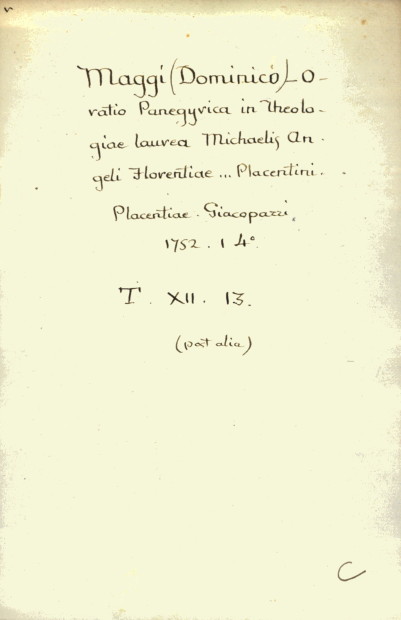 Maggi (Dominico) O-
ratio Panegyrica in Theolo-
giae laurea Michaelis An-
geli Florentiae ... Placentini.
Placentiae. Giacopazzi,
1752. 1 4°.
T. XII. 13.
(post alia)
C